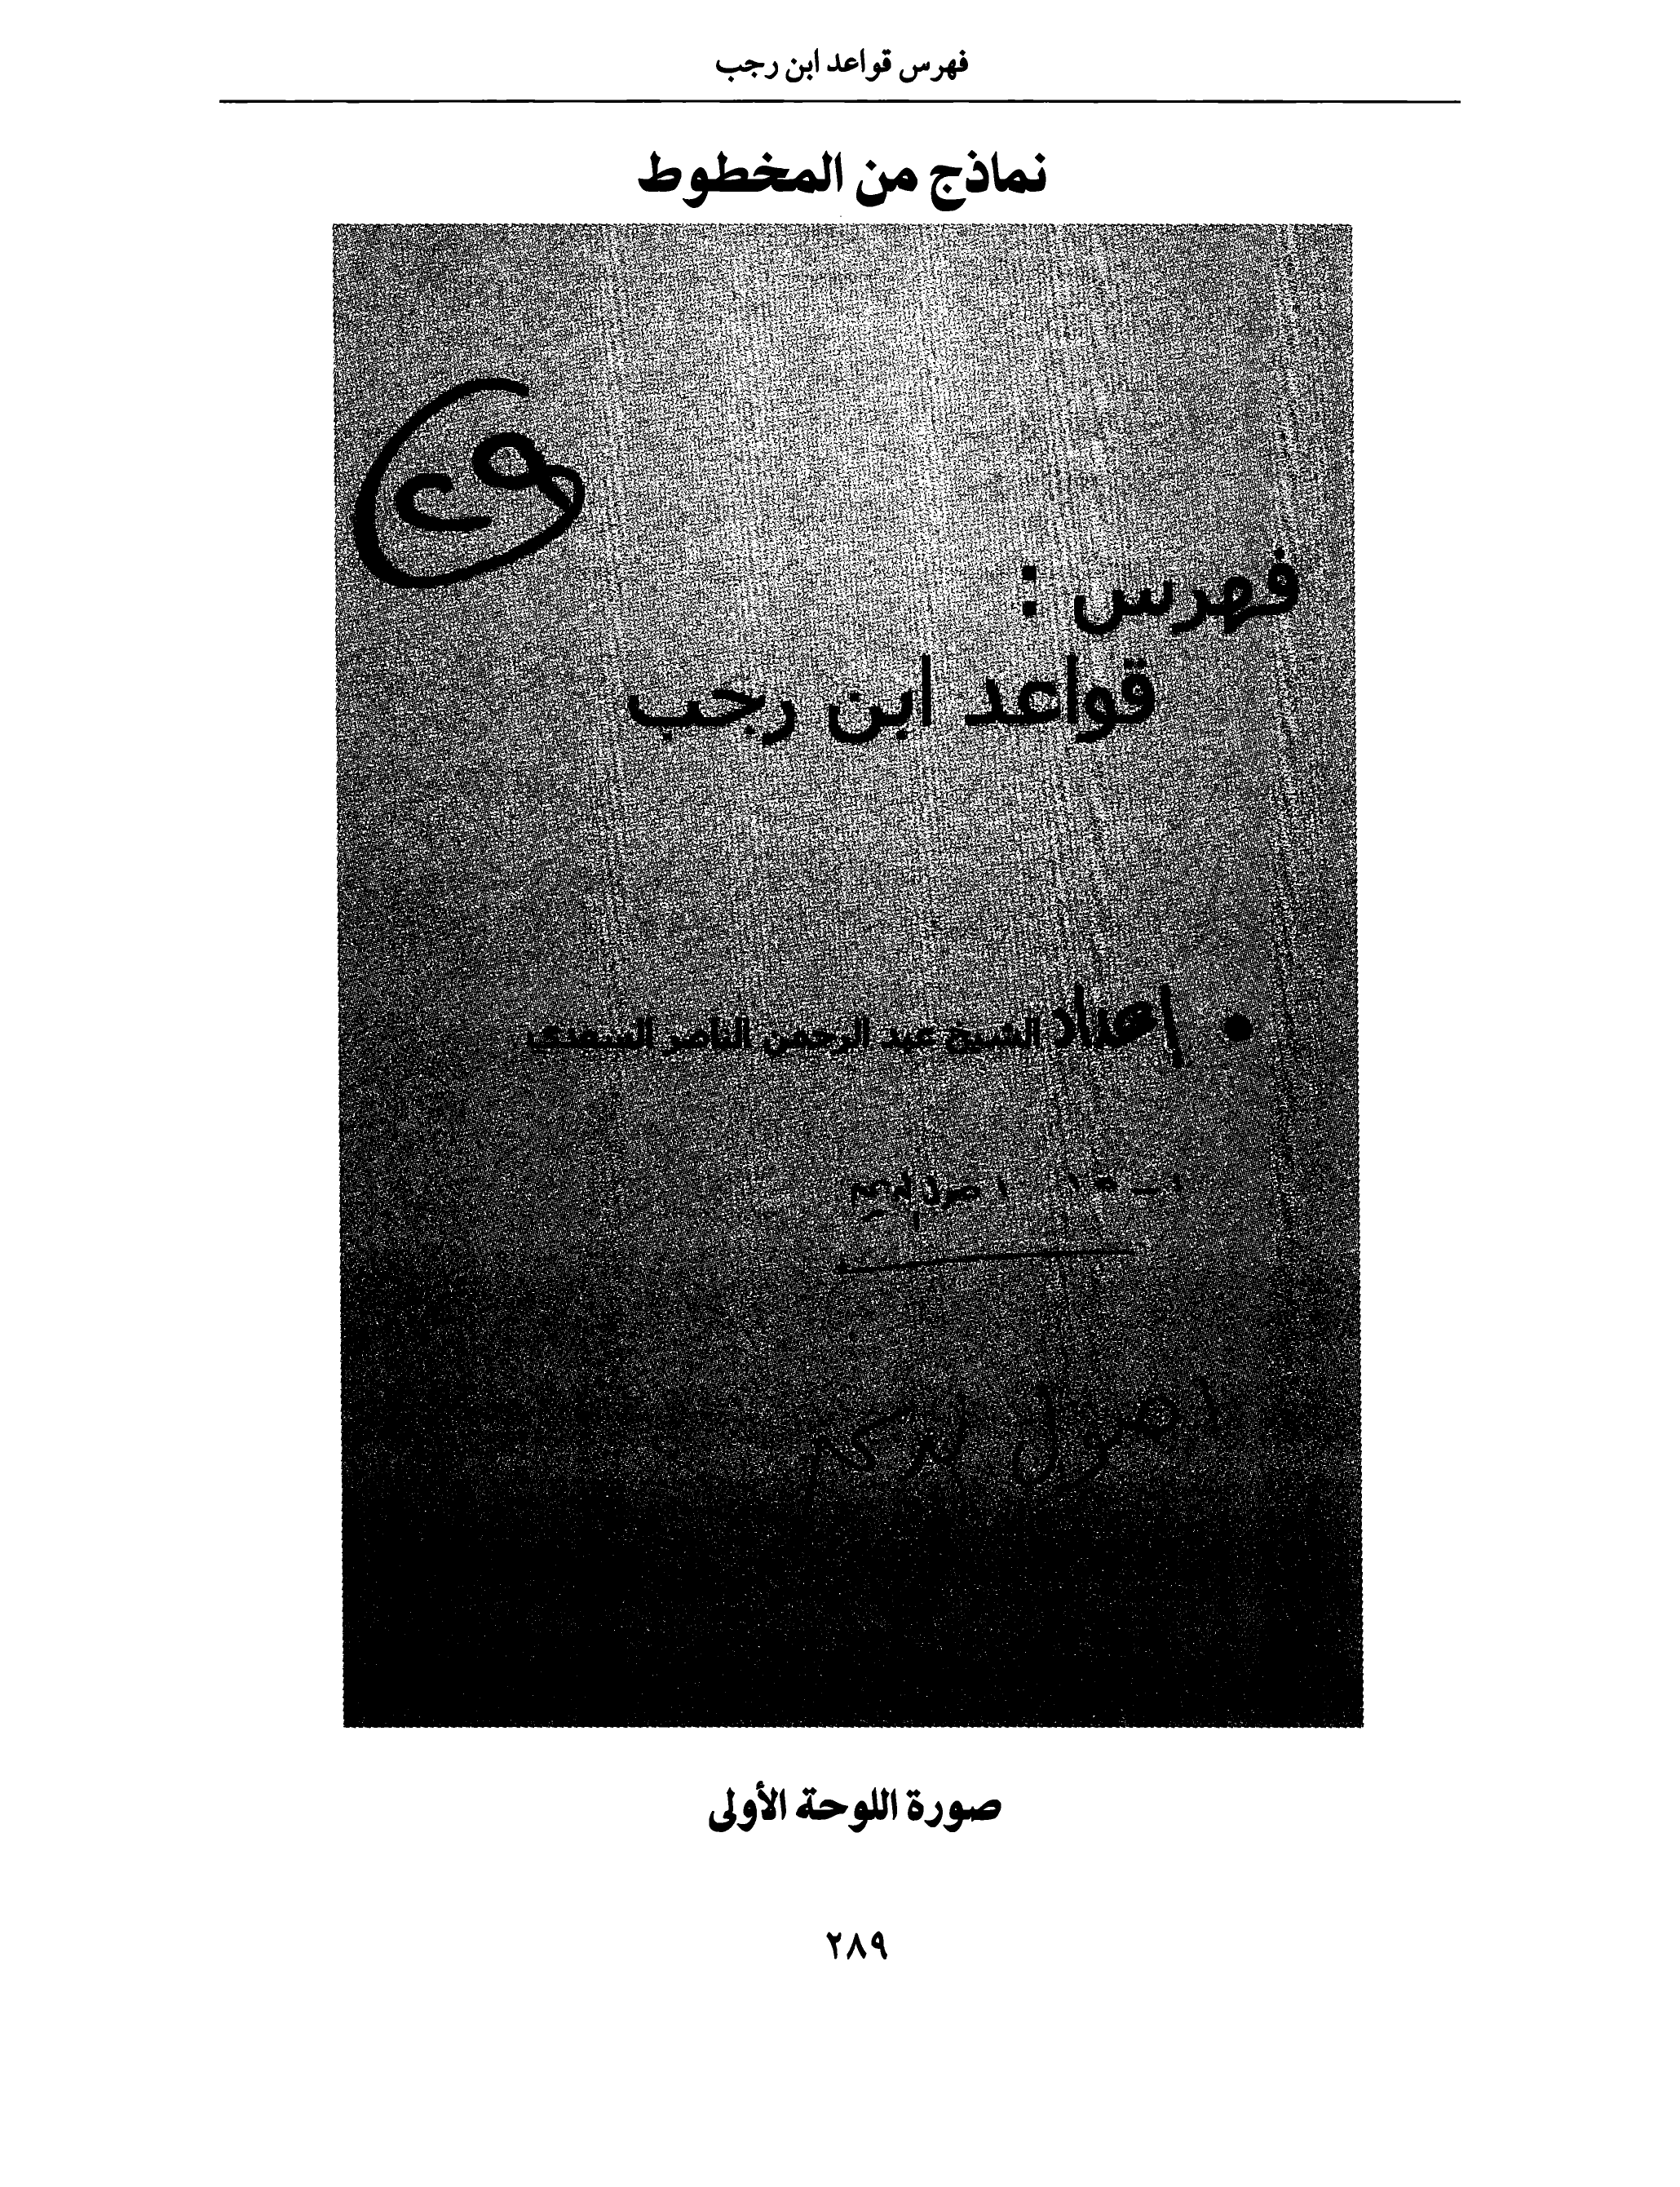 فهرس قواعد ابن رجب
نماذج من المخطوط
فهرس :
قواعد ابن رجب
• إعداد الشيخ عبد الرحمن الناصر السعدي
اصول
اصول
صورة اللوحة الأولى
٢٨٩